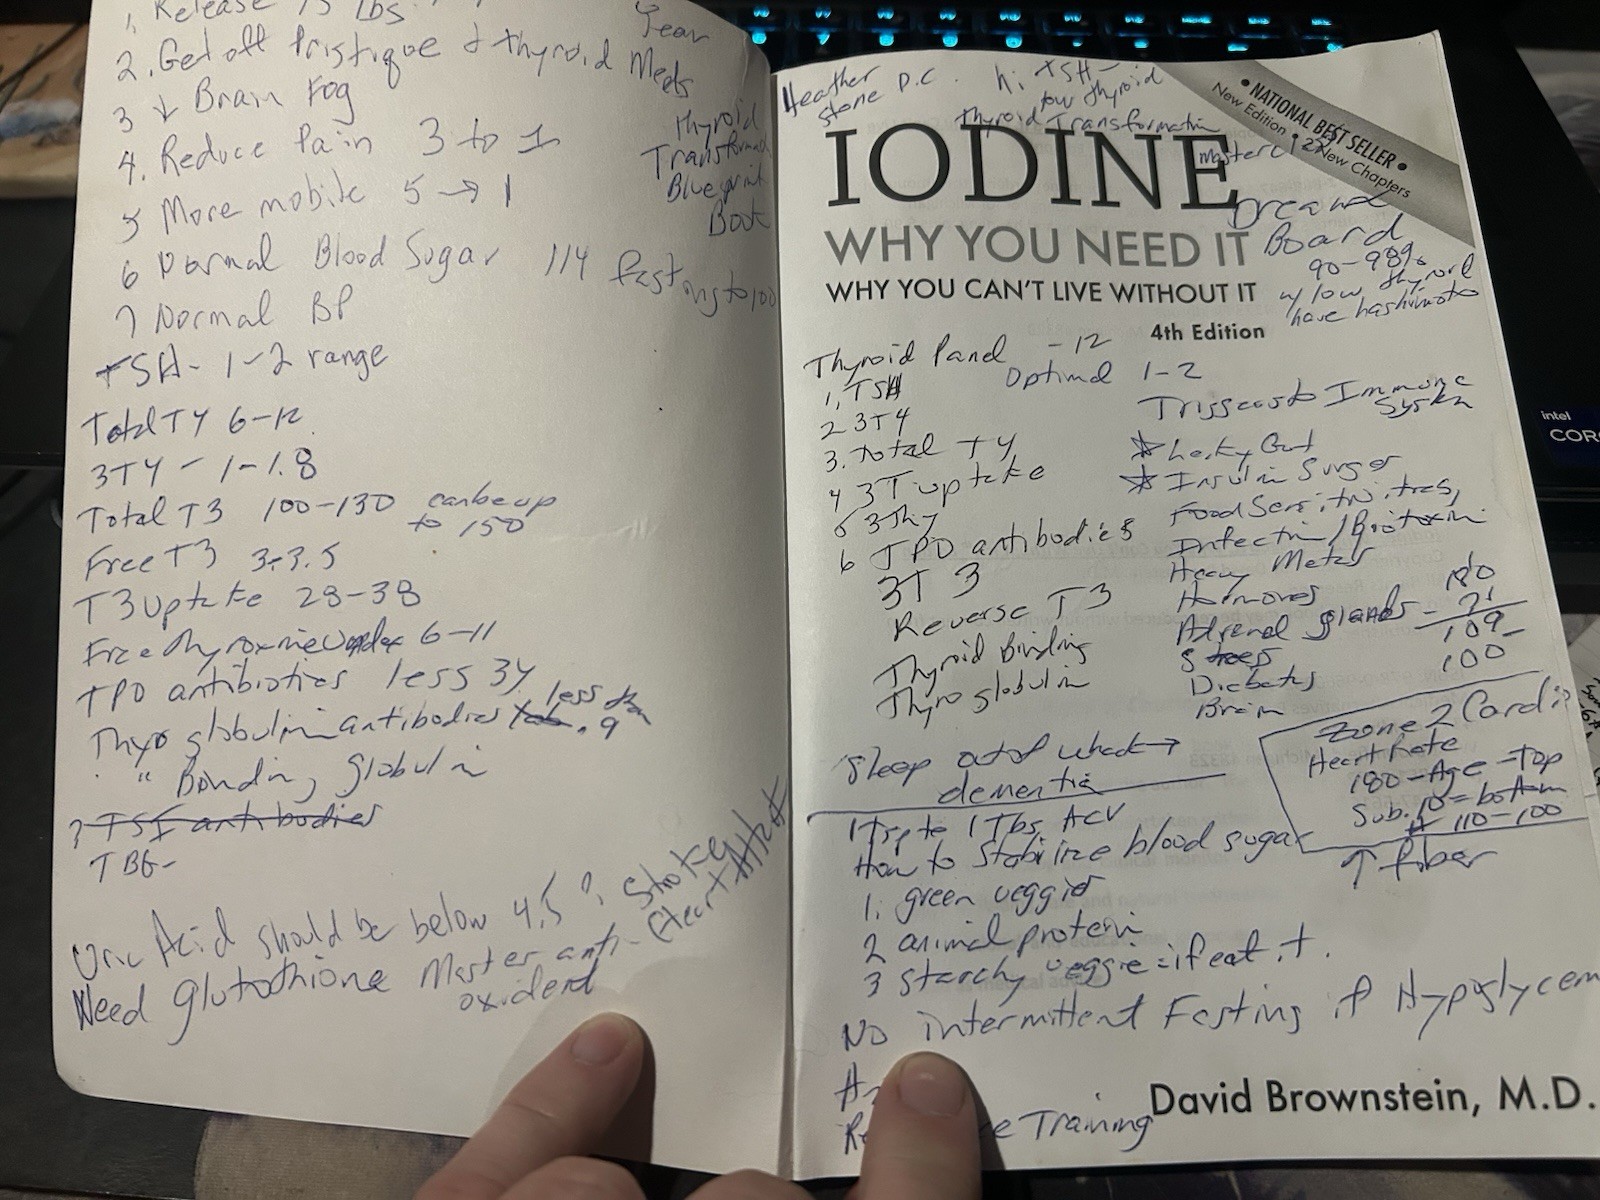 1. Release 15 Lbs
Year
2. Get off Pristique & thyroid Meds
3 ↓ Brain Fog
4. Reduce Pain 3 to 1
Thyroid
Transformation
Blueprint
Book
5 More mobile 5 → 1
6 Normal Blood Sugar 114 fasting to 100
7 Normal BP
TSH - 1-2 range
Total T4 6-12
3T4 - 1-1.8
Total T3 100-130 can be up
to 150
Free T3 3-3.5
T3 Uptake 28-38
Free thyroxine Index 6-11
TPO antibioties less 34
Thyro globulin antibodies less than
.9
" Bonding globulin
? TSI antibodies
TBG-
Uric Acid should be below 4.5 ? Stroke
Heart Attack
Need glutothione Master anti-
oxident
Heather
Stone D.C.
hi TSH -
low thyroid
Thyroid Transformation
Masterc
• NATIONAL BEST SELLER •
New Edition • New Chapters
IODINE
Dream
Board
WHY YOU NEED IT
90-98%
w/ low thyroid
have hashimoto
WHY YOU CAN'T LIVE WITHOUT IT
4th Edition
Thyroid Panel - 12
1, TSH Optimal 1-2
2 3T4
3. Total T4
4 3T uptake
5 3Thy
6 TPO antibodies
3T 3
Reverse T3
Thyroid Binding
Thyro globulin
Triggers to Immune
System
* Leaky Gut
* Insulin Surges
Food Sensitivities,
Infection/Biotoxin
Heavy Metals
Hormones
Adrenal glands
Stress
Diabetes
Brain
180
- 71
109-
100
Sleep out of whack →
dementia
Zone 2 Cardio
Heart Rate
180 - Age - Top
Sub. 10 = bottom
110-100
1 Tsp to 1 Tbs, ACV
How to Stabilize blood sugar
↑ fiber
1. green veggies
2 animal protein
3 starchy veggie = if eat it.
No intermittent Fasting if Hypoglycem
David Brownstein, M.D.
Training